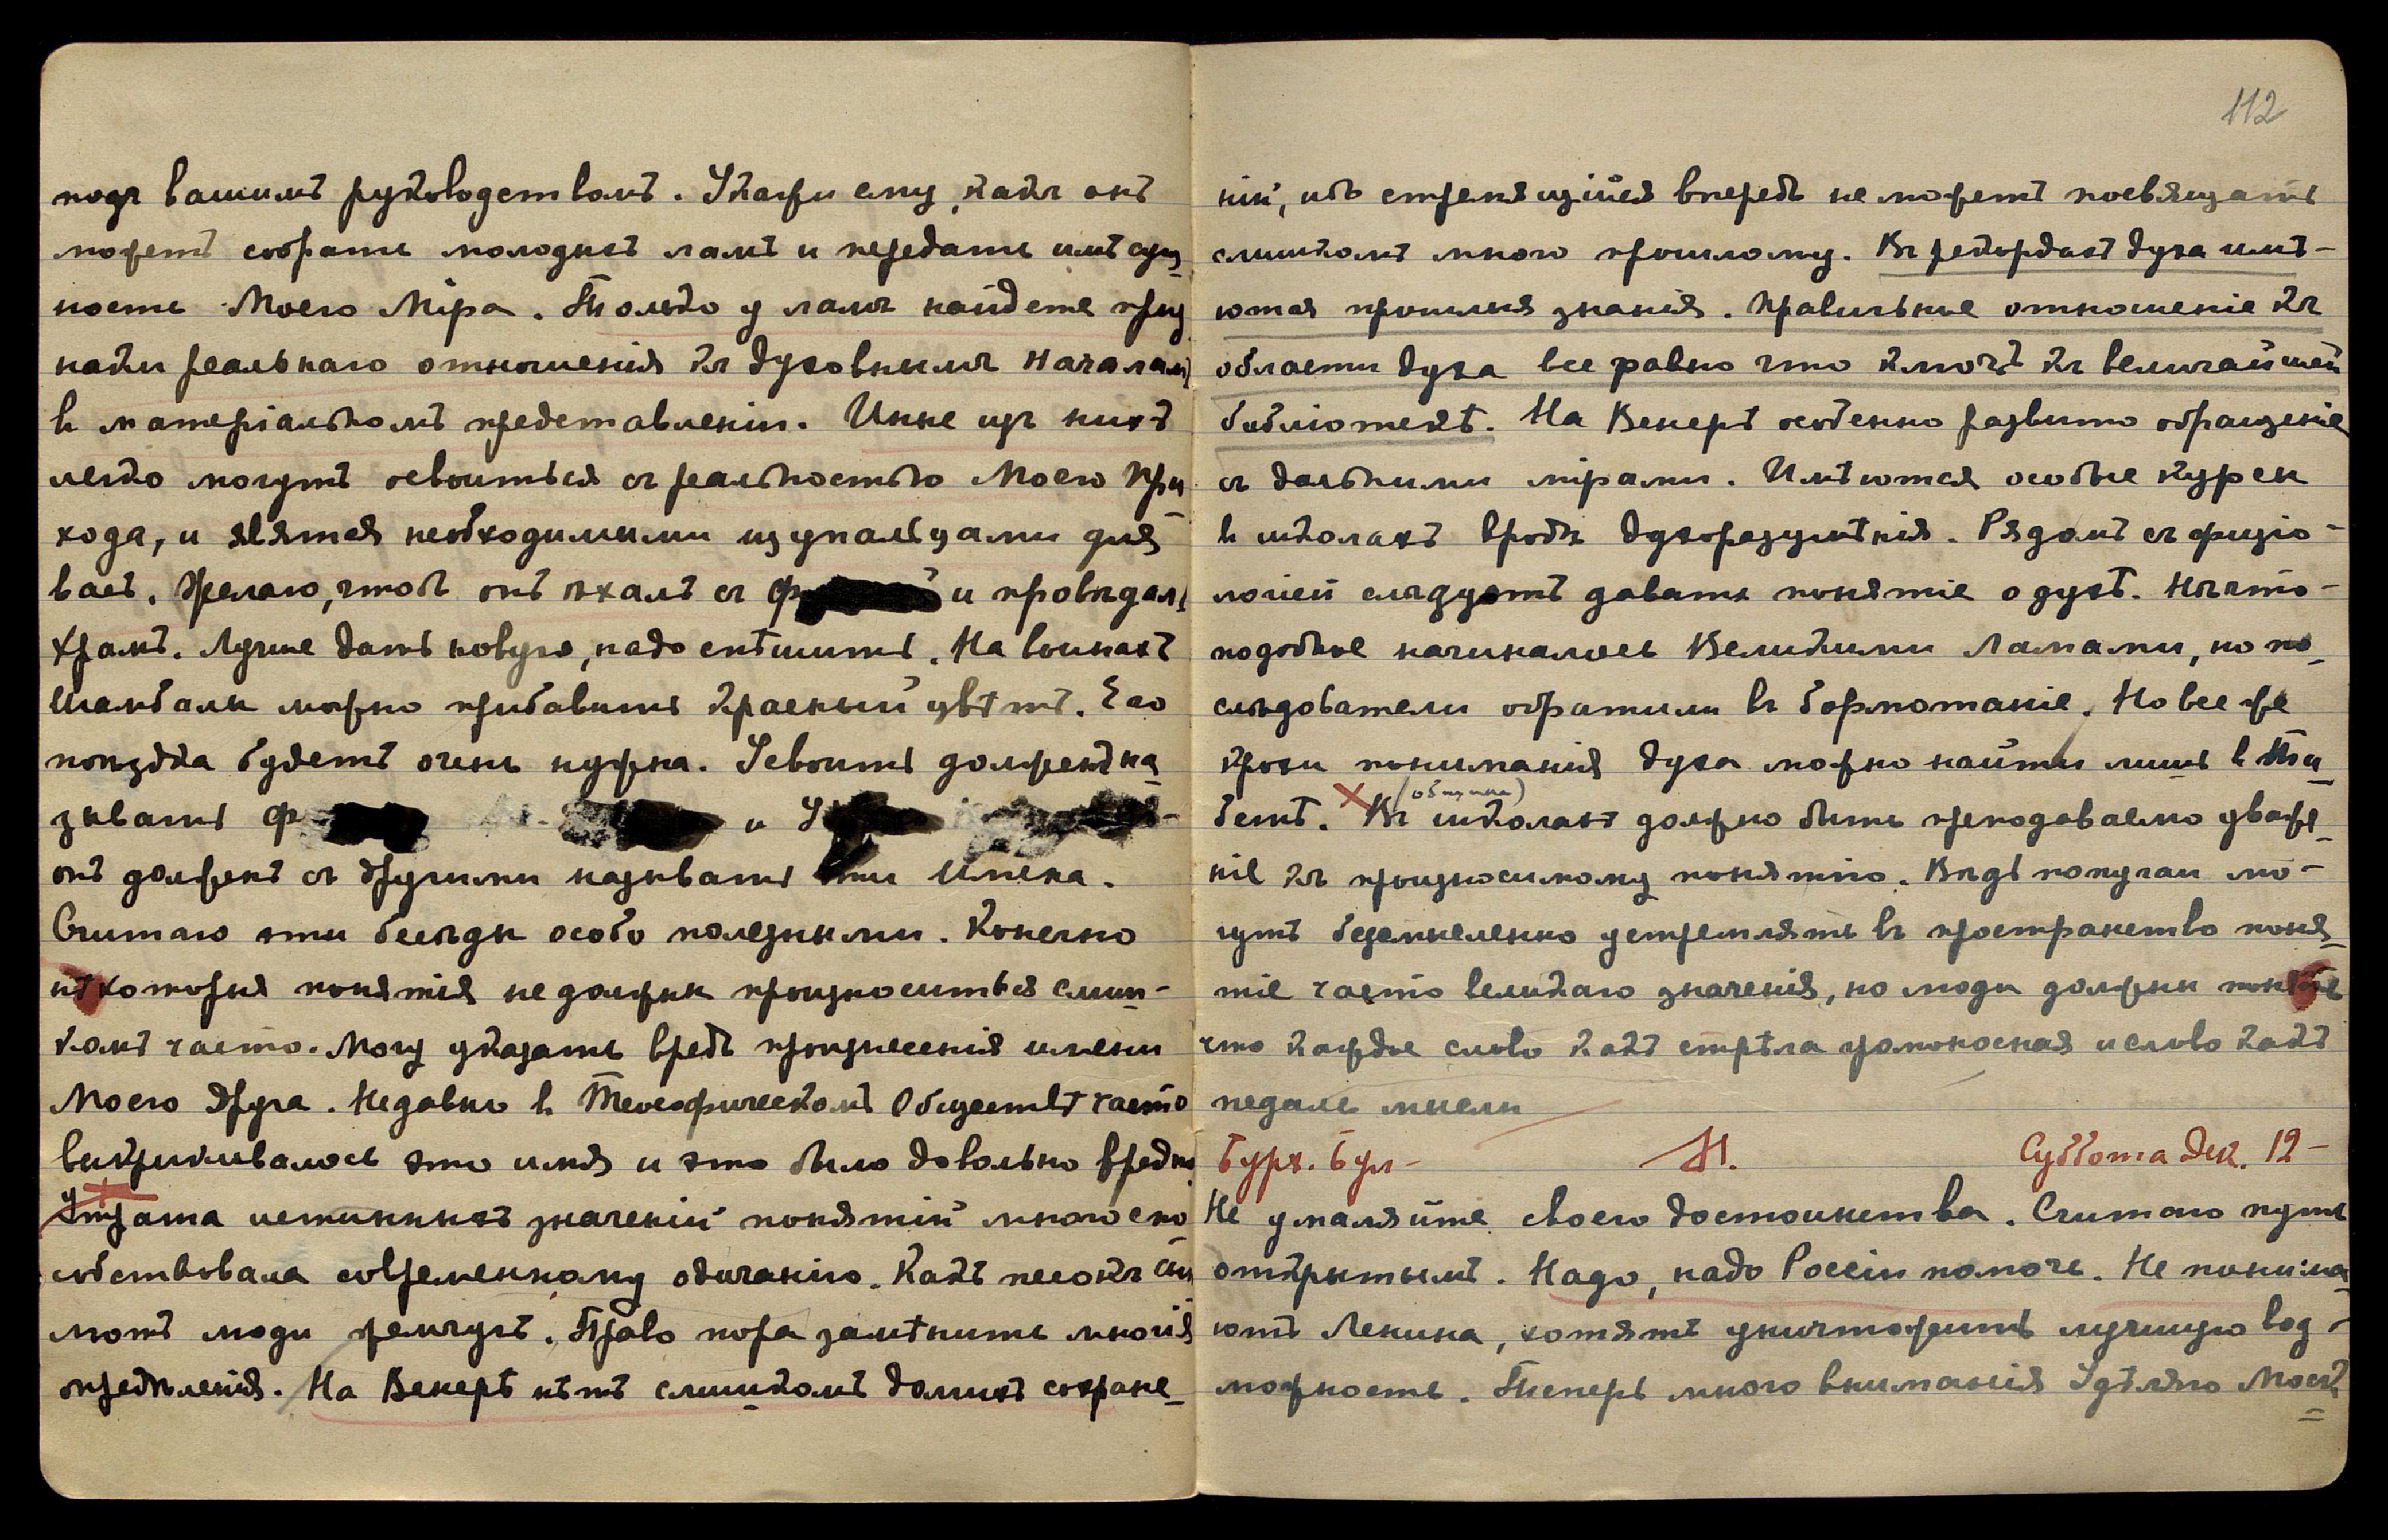 подъ вашимъ руководствомъ. Укажи ему, какъ онъ
можетъ собрать молодыхъ ламъ и передать имъ сущ-
ность Моего Міра. Только у ламъ найдете приз
наки реальнаго отношенія къ духовнымъ началамъ
въ матеріальномъ представленіи. Иные изъ нихъ
легко могутъ освоиться съ реальностью Моего При-
хода, и явятся необходимыми щупальцами для
васъ. Желаю, чтобъ онъ ѣхалъ съ Ф и провѣдалъ
храмъ. Лучше дать новую, надо спѣшить. На воинахъ
Шамбалы можно прибавить красный цвѣтъ. Его
поѣздка будетъ очень нужна. Усвоить долженъ на-
зывать Ф и У
онъ долженъ съ другими называть эти имена.
Считаю эти бесѣды особо полезными. Конечно
нѣкоторыя понятія не должны произноситься слиш-
комъ часто. Могу указать вредъ произнесенія имени
Моего Друга. Недавно въ Теософическомъ Обществѣ часто
выкрикивалось это имя и это было довольно вредно.
Утрата истинныхъ значеній понятій много спо
собствовала современному одичанію. Какъ песокъ сы
плютъ люди жемчугъ. Право пора замѣнить многія
опредѣленія. На Венерѣ нѣтъ слишкомъ долгихъ сохране-
112
ній, ибо стремящійся впередъ не можетъ посвящать
слишкомъ много прошлому. Въ рекордахъ духа имѣ-
ются прошлыя знанія. Правильное отношеніе къ
области духа все равно что ключъ къ величайшей
библіотекѣ. На Венерѣ особенно развито обращеніе
съ дальними мірами. Имѣются особые курсы
въ школахъ вродѣ духоразумѣнія. Рядомъ съ физіо-
логіей слѣдуетъ давать понятіе о духѣ. Нѣчто-
подобное начиналось Великими Ламами, но по-
слѣдователи обратили въ бормотаніе. Но все же
крохи пониманія духа можно найти лишь въ Ти-
бетѣ. Въ школахъ должно быть преподаваемо уваже-
(общины)
ніе къ произносимому понятію. Вѣдь попугаи мо-
гутъ безсмысленно устремлять въ пространство поня-
тіе часто великаго значенія, но люди должны понять
что каждое слово какъ стрѣла громоносная и слово какъ
педаль мысли
Бурх. Бул- Н. Суббота Дек. 12-
Не умаляйте своего достоинства. Считаю путь
открытымъ. Надо, надо Россіи помочь. Не понима-
ютъ Ленина, хотятъ уничтожить лучшую воз-
можность. Теперь много вниманія Удѣляю Моей